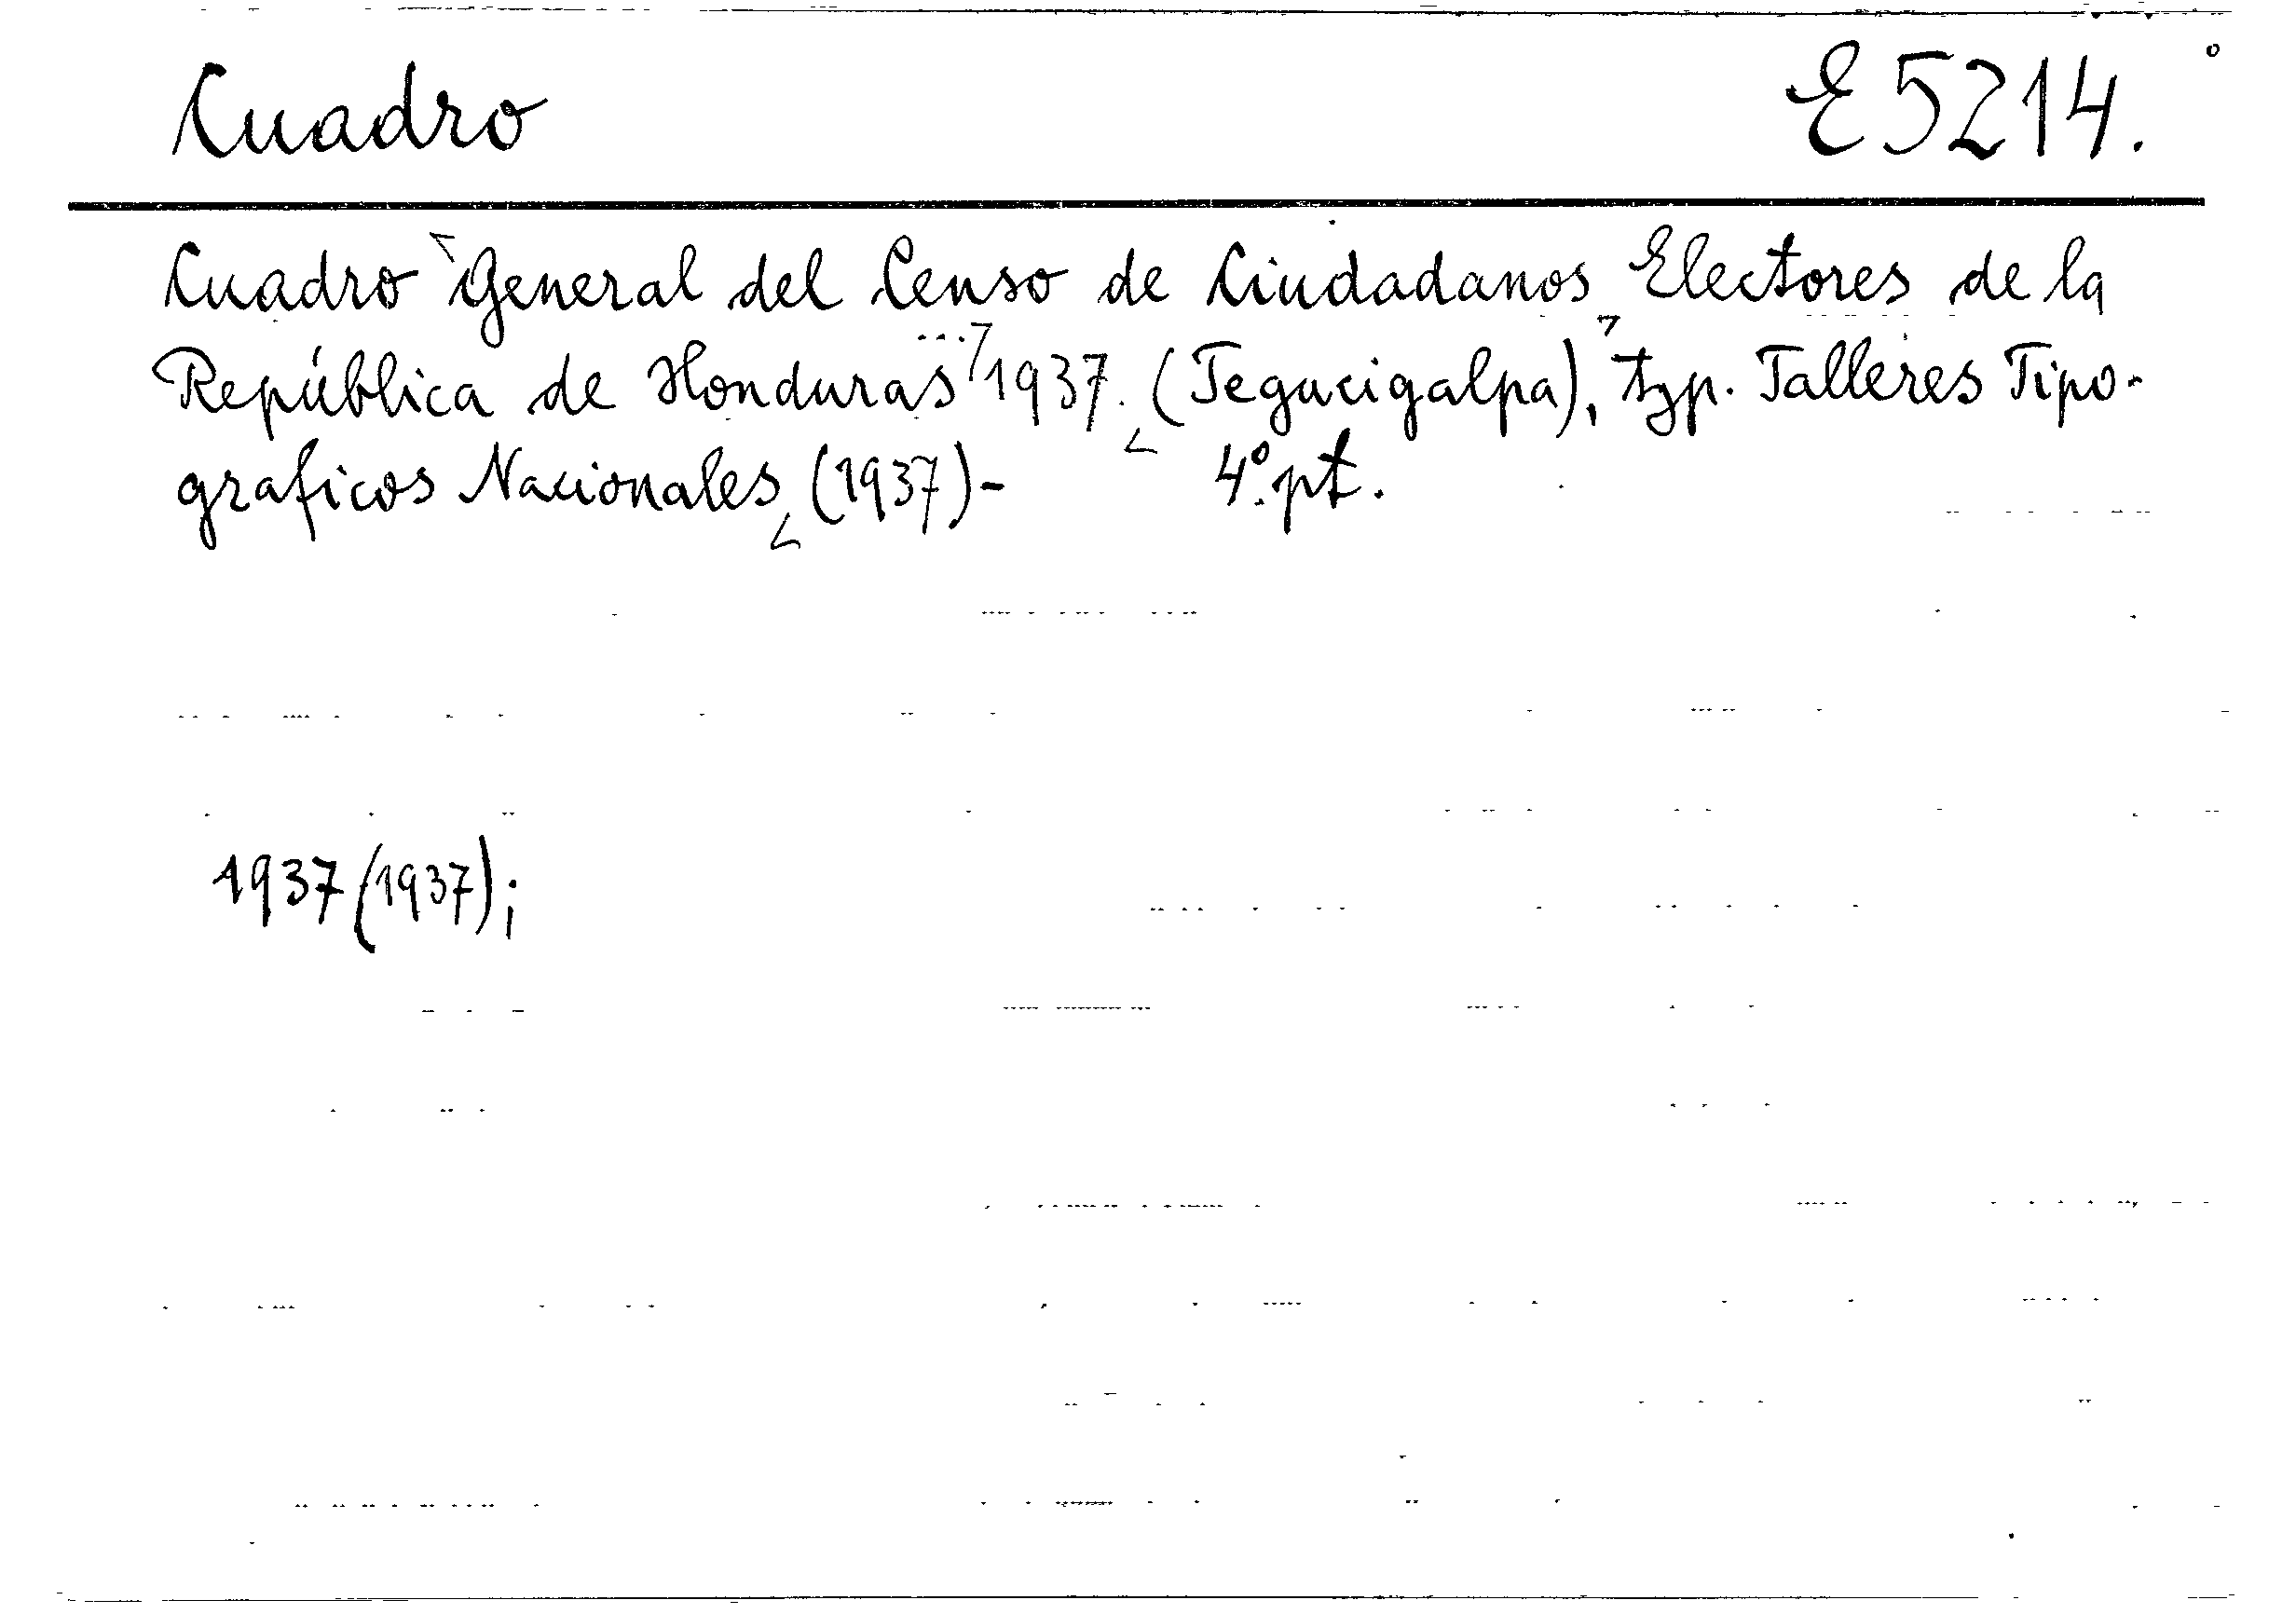 Cuadro E 5214.
Cuadro General del Censo de Ciudadanos Electores de la
República de Honduras ... 1937. (Tegucigalpa), typ. Talleres Tipo-
graficos Nacionales (1937)- 4º. pt.
1937 (1937);